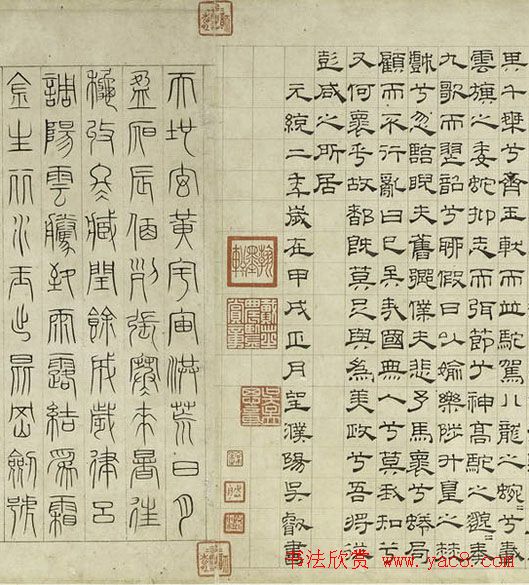 其千乘兮齊玉軑而並馳駕八龍之蜿〻兮載
雲旗之委蛇抑志而弭節兮神高馳之邈〻奏
九歌而舞韶兮聊假日以媮樂陟升皇之赫
戲兮忽臨睨夫舊鄉僕夫悲予馬懷兮蜷局
顧而不行亂曰已矣哉國無人兮莫我知兮
又何懷乎故都既莫足與為美政兮吾將從
彭咸之所居
元統二年歲在甲戌正月望濮陽吳叡書
天地玄黃宇宙洪荒日月
盈昃辰宿列張寒來暑往
秋收冬藏閏餘成歲律呂
調陽雲騰致雨露結為霜
金生麗水玉出崑岡劍號
书法欣赏 www.yac8.com